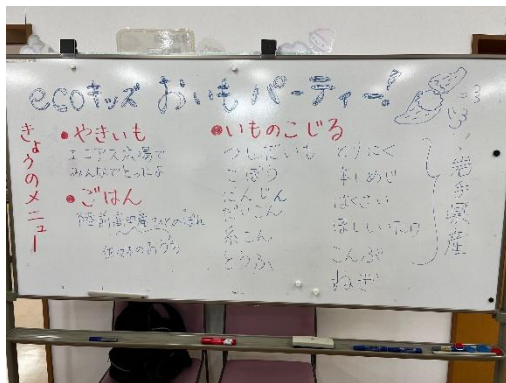 ecoキッズ おいもパーティー!
きょうのメニュー
●やきいも
みんなでとったよ
●ごはん
●いものこじる
ごぼう
にんじん
だいこん
糸こん
とうふ
とりにく
本しめじ
はくさい
ほししいたけ
こんぶ
ねぎ
岩手県産